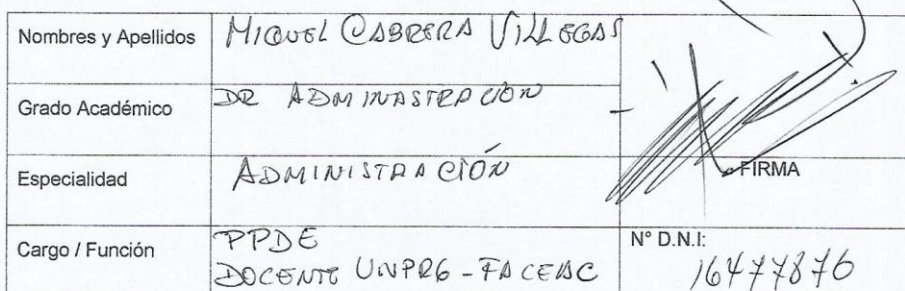 Nombres y Apellidos MIGUEL CABRERA VILLEGAS
Grado Académico DR ADMINASTRACION
Especialidad ADMINISTRACIÓN
FIRMA
Cargo / Función PPDE
DOCENTE UNPRG - FACEAC
N° D.N.I:
16477876